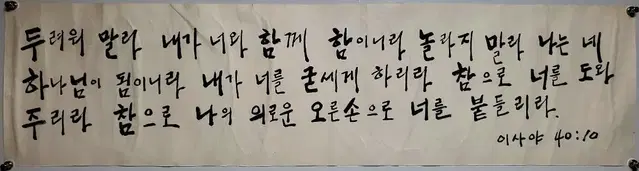 두려워 말라 내가 너와 함께 함이니라 놀라지 말라 나는 네
하나님이 됨이니라 내가 너를 굳세게 하리라 참으로 너를 도와
주리라 참으로 나의 의로운 오른손으로 너를 붙들리라.
이사야 40:10